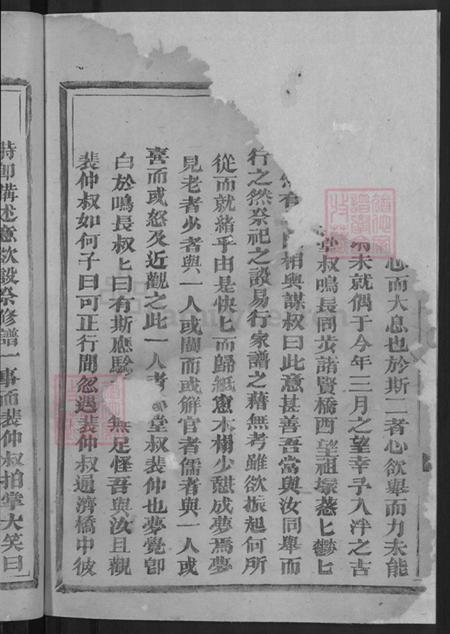 心而大息也於斯二者心欲舉而力未能
未就偶于今年三月之望幸予入泮之吉
堂叔鳴長同於諸賢橋西望祖塚蔥匕鬱匕
相與謀叔曰此意甚善吾當與汝同舉而
行之然祭祀之設易行家譜之藉無考雖欲振起何所
從而就緒乎由是快匕而歸紙窻木榻少憇成夢焉夢
見老者少者與一人或鬬而或解官者儒者與一人或
喜而或怒及近觀之此一人者堂叔裴仲也夢覺卽
白於鳴長叔匕曰有斯應驗無足怪吾與汝且觀
裴仲叔如何子曰可正行間忽遇裴仲叔通濟橋中彼
時卽講述意欲設祭修譜一事而裴仲叔拍掌大笑曰